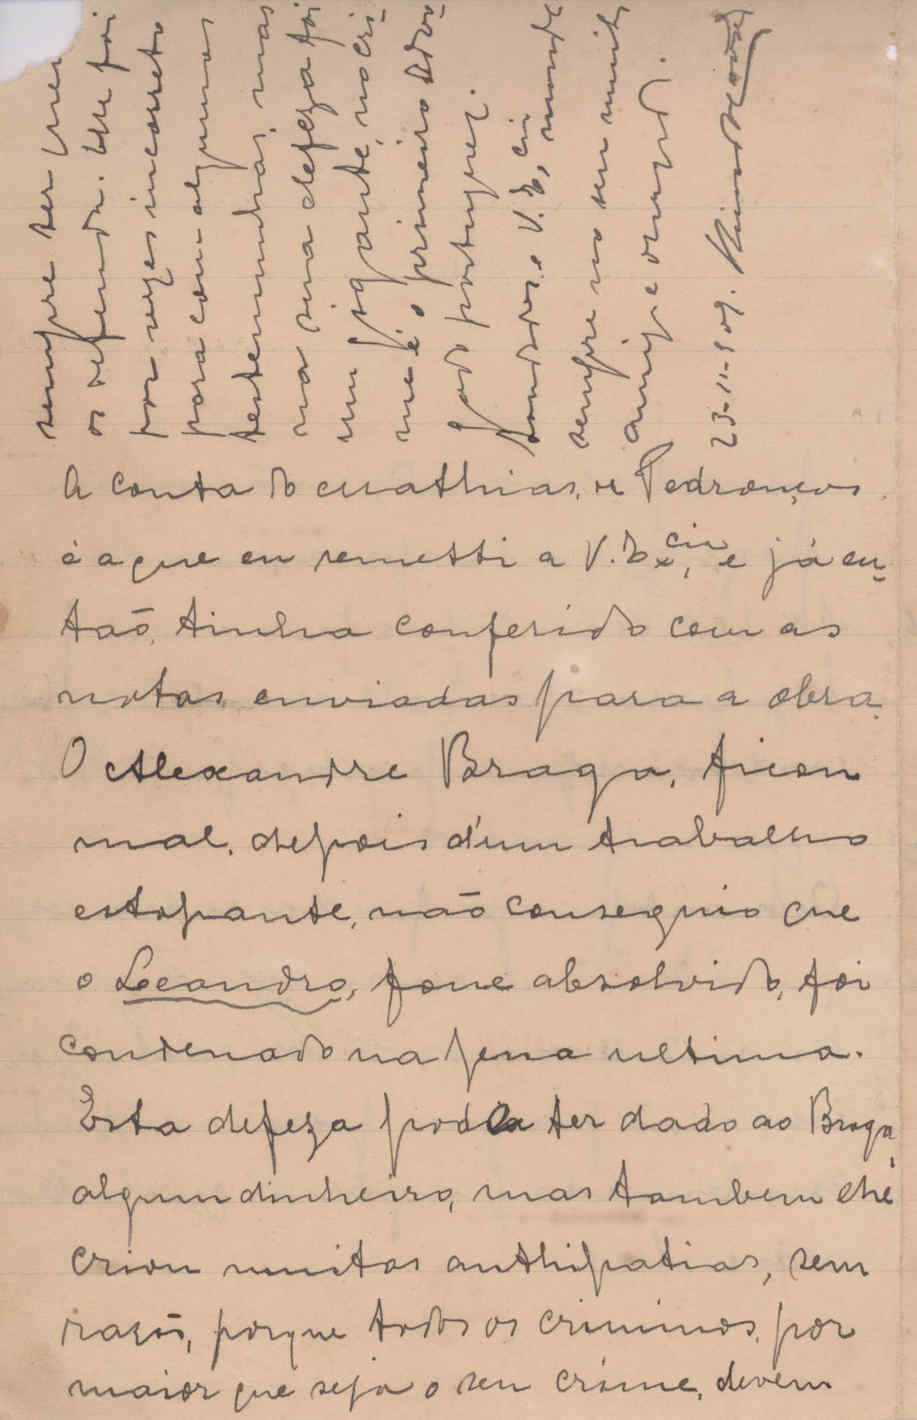 A conta do Mathias, e Pedrouços
é a que eu remetti a V. Ex.cia, e já en-
taõ, tinha conferido com as
notas, enviadas para a obra.
O Alexandre Braga, ficou
mal, depois d'um trabalho
estopante, não conseguio que
o Leandro, fosse absolvido, foi
condenado na pena ultima.
Esta defeza poda ter dado ao Braga,
algum dinheiro, mas tambem lhe
criou muitas anthipatias, sem
razão, porque todos os criminosos, por
maior que seja o seu crime, devem
sempre ter quem
os defenda. Elle foi
por vezes incorreto
para com algumas
testemunhas, mas
na sua defeza foi
um gigante, no cri-
me é o primeiro advo-
gado portuguez.
Saudades e V. Ex.cia, mande
sempre no seu muito
amigo e obrigado.
23-11-909.